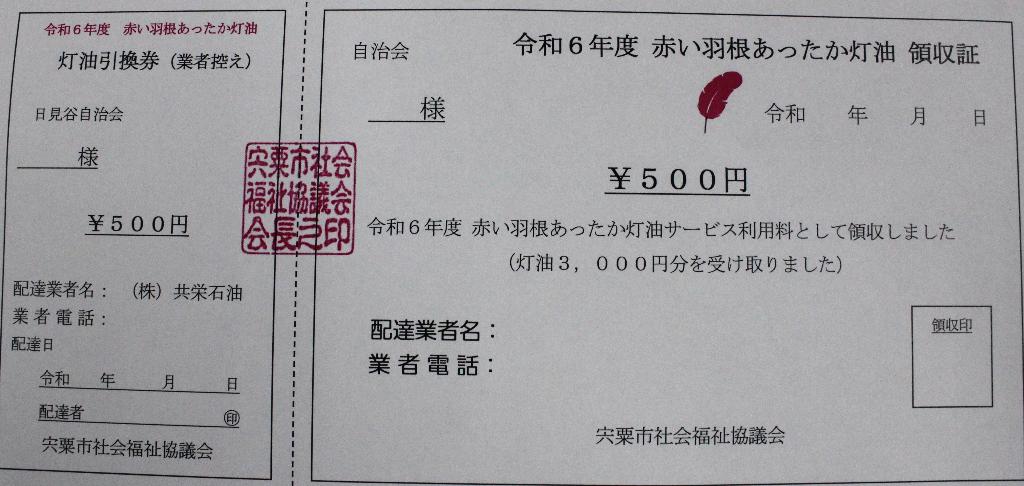 令和６年度　赤い羽根あったか灯油
灯油引換券（業者控え）
日見谷自治会
様
￥５００円
配達業者名：　（株）共栄石油
業者電話：
配達日
令和　年　月　日
配達者　㊞
宍粟市社会福祉協議会
宍粟市社会
福祉協議会
会長之印
自治会
令和６年度 赤い羽根あったか灯油 領収証
様
令和　年　月　日
￥５００円
令和６年度 赤い羽根あったか灯油サービス利用料として領収しました
（灯油３，０００円分を受け取りました）
配達業者名：
業者電話：
領収印
宍粟市社会福祉協議会